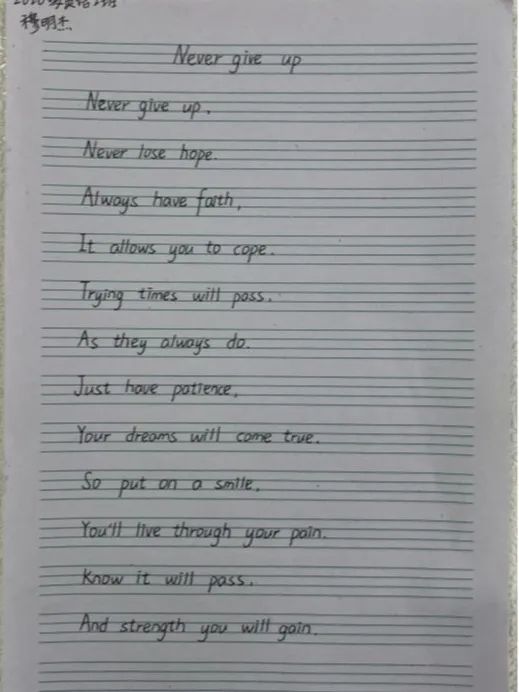 2020级英语2班
穆明杰
Never give up
Never give up,
Never lose hope.
Always have faith,
It allows you to cope.
Trying times will pass,
As they always do.
Just have patience,
Your dreams will come true.
So put on a smile,
You'll live through your pain.
Know it will pass,
And strength you will gain.